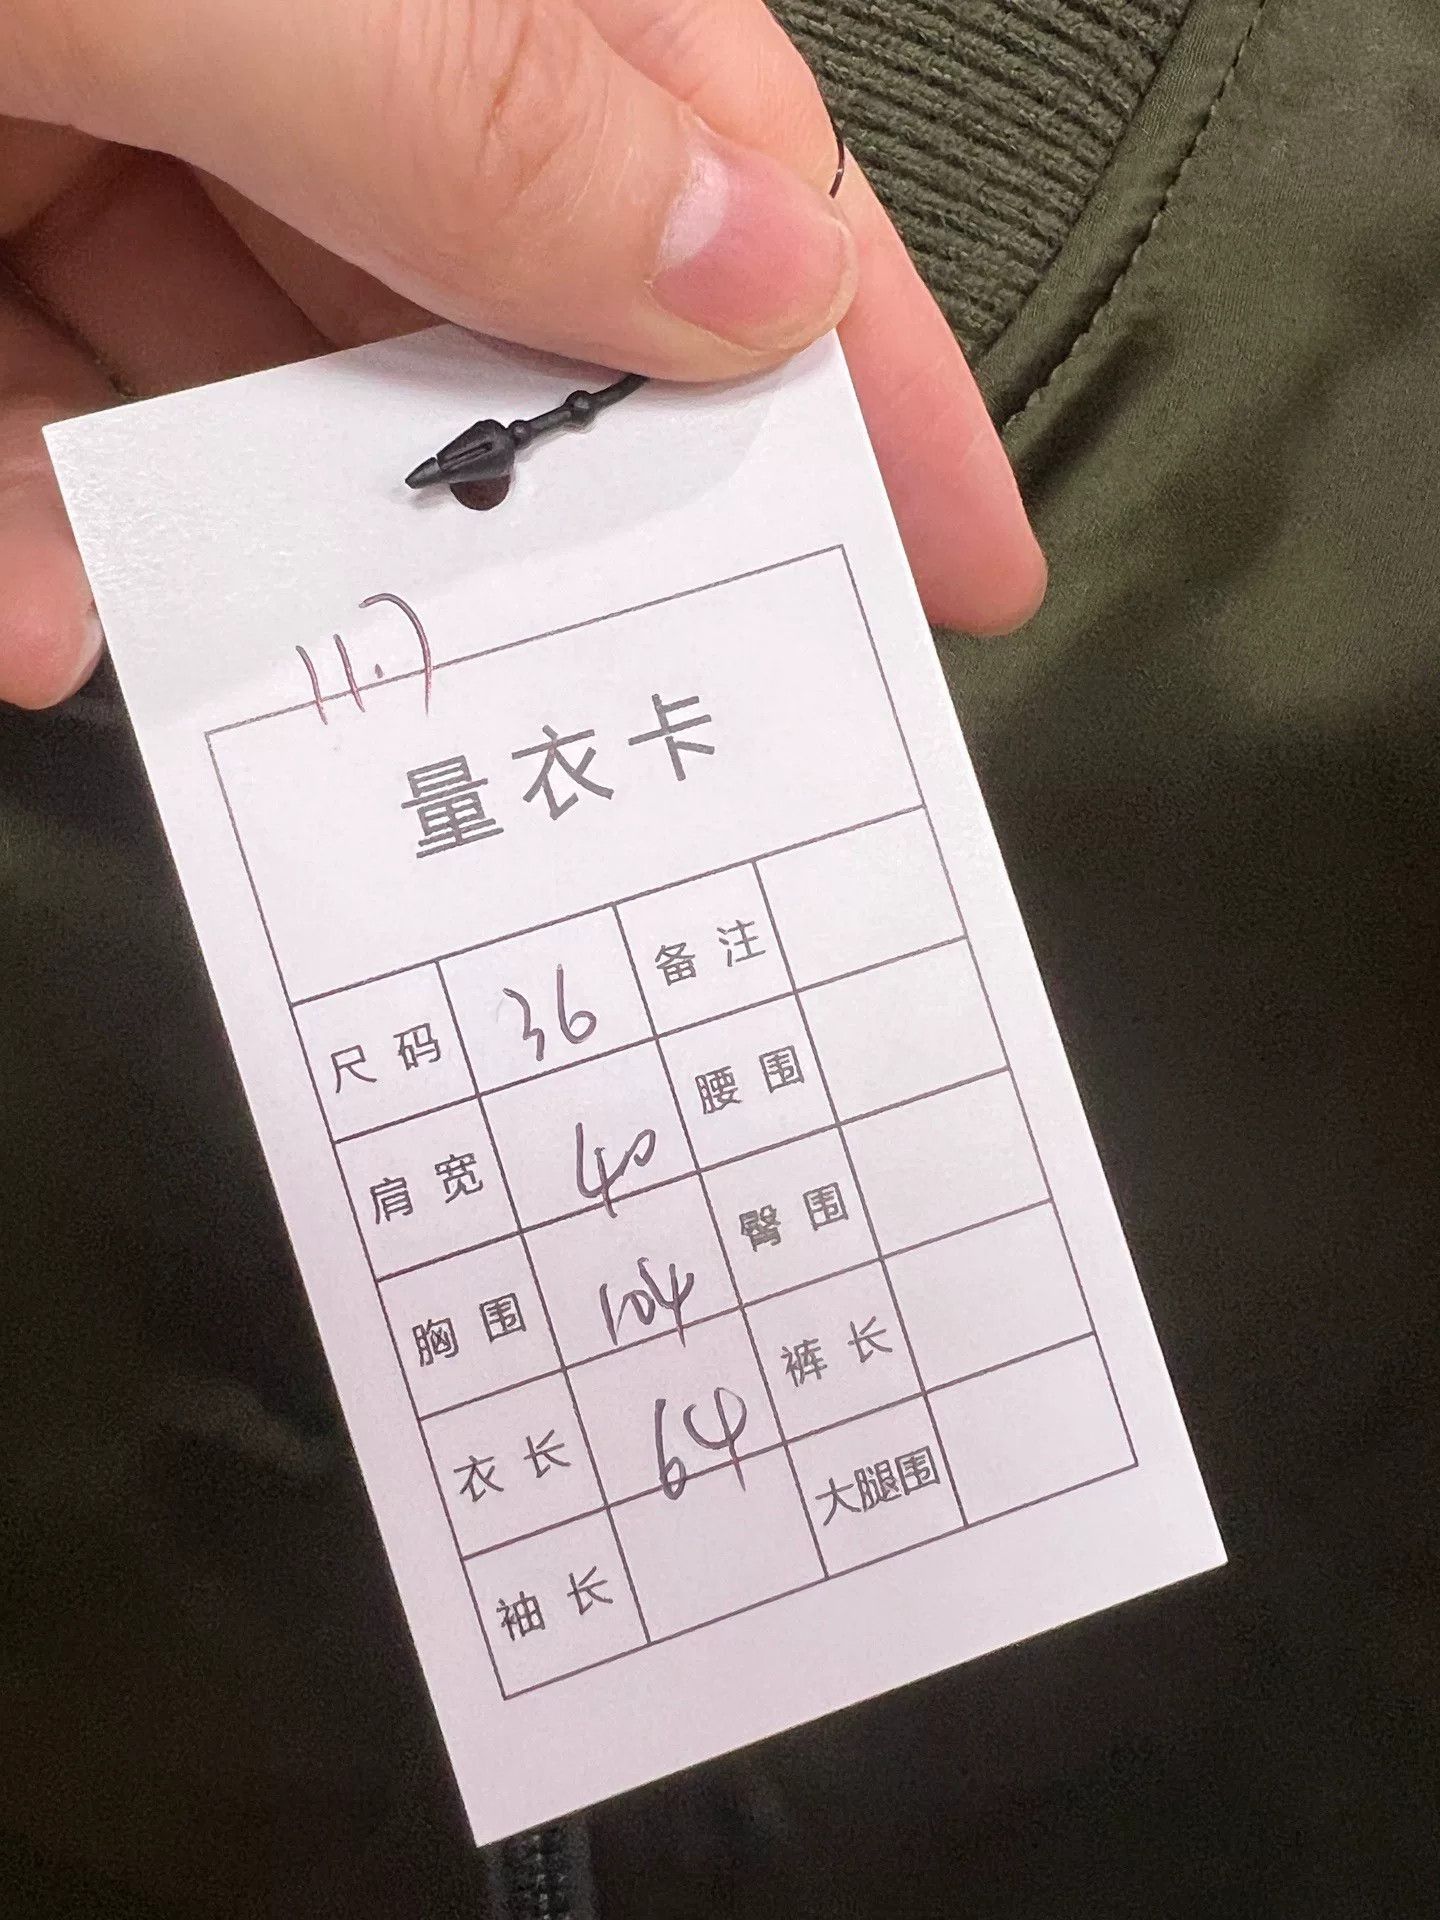 11.7
量衣卡
尺码 36 备注
肩宽 40 腰围
胸围 104 臀围
衣长 64 裤长
袖长 大腿围